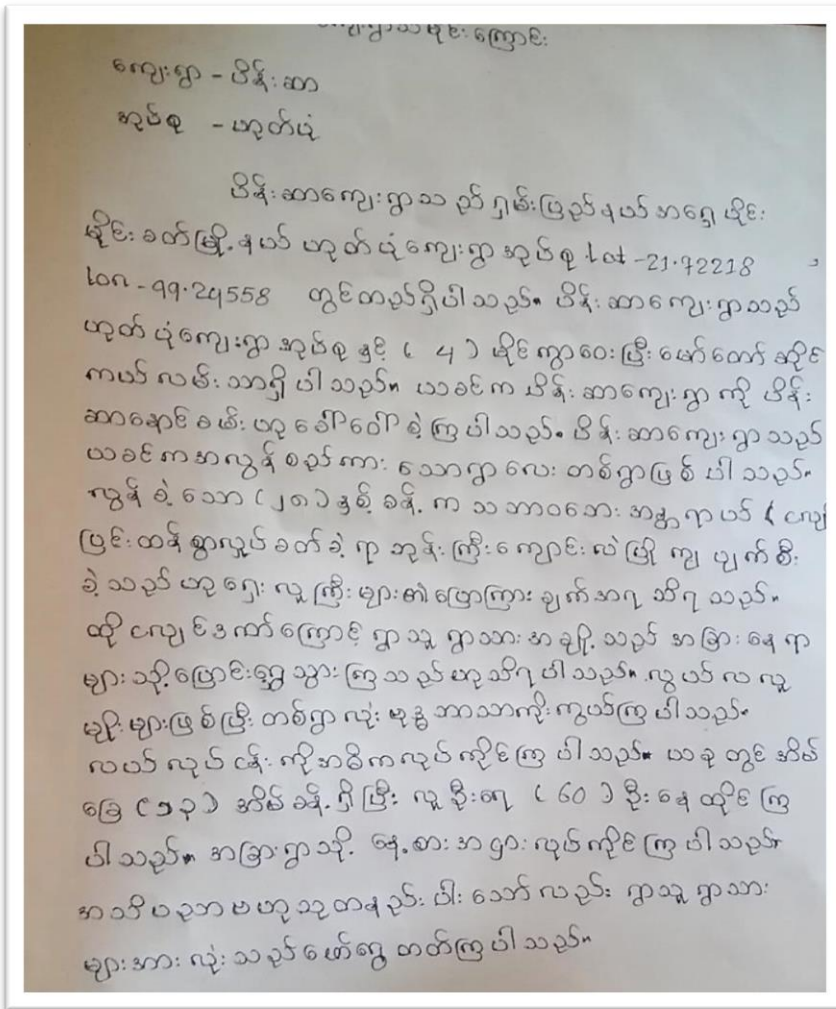 ကျေးရွာသမိုင်းကြောင်း
ကျေးရွာ - ပိန်းဆာ
အုပ်စု - ဟုတ်ပုံ
ပိန်းဆာကျေးရွာသည် ရှမ်းပြည်နယ် အရှေ့ပိုင်း
မိုင်းခတ်မြို့နယ် ဟုတ်ပုံကျေးရွာအုပ်စု Lat -21.92218
lon - 99.24558 တွင်တည်ရှိပါသည်။ ပိန်းဆာကျေးရွာသည်
ဟုတ်ပုံကျေးရွာအုပ်စုနှင့် ( 4 ) မိုင်ကွာဝေးပြီး မော်တော်ဆိုင်
ကယ်လမ်းသာရှိပါသည်။ ယခင်က ပိန်းဆာကျေးရွာကို ပိန်း
ဆာနောင်ခမ်းဟု ခေါ်ဝေါ်ခဲ့ကြပါသည်။ ပိန်းဆာကျေးရွာသည်
ယခင်ကအလွန်စည်ကားသောရွာလေးတစ်ရွာဖြစ်ပါသည်။
လွန်ခဲ့သော (၂၈) နှစ်ခန့်က သဘာဝဘေးအန္တရာယ် ( ငလျင်
ပြင်းထန်စွာလှုပ်ခတ်ခဲ့ရာ ဘုန်းကြီးကျောင်းလဲပြိုကျပျက်စီး
ခဲ့သည်ဟု ရှေးလူကြီးများ၏ပြောကြားချက်အရ သိရသည်။
ထိုငလျင်ဒဏ်ကြောင့် ရွာသူ ရွာသားအချို့သည် အခြားနေရာ
များသို့ပြောင်းရွှေ့သွားကြသည်ဟုသိရပါသည်။ လွယ်လလူ
မျိုးများဖြစ်ပြီး တစ်ရွာလုံးဗုဒ္ဓဘာသာကိုးကွယ်ကြပါသည်။
လယ်လုပ်ငန်းကိုအဓိကလုပ်ကိုင်ကြပါသည်။ ယခုတွင် အိမ်
ခြေ (၁၃) အိမ်ခန့်ရှိပြီး လူဦးရေ ( 60 ) ဦးနေထိုင်ကြ
ပါသည်။ အခြားရွာသို့ နေ့စားအငှားလုပ်ကိုင်ကြပါသည်။
အသိပညာဗဟုသုတနည်းပါးသော်လည်း ရွာသူရွာသား
များအားလုံးသည်ဖော်ရွေတတ်ကြပါသည်။